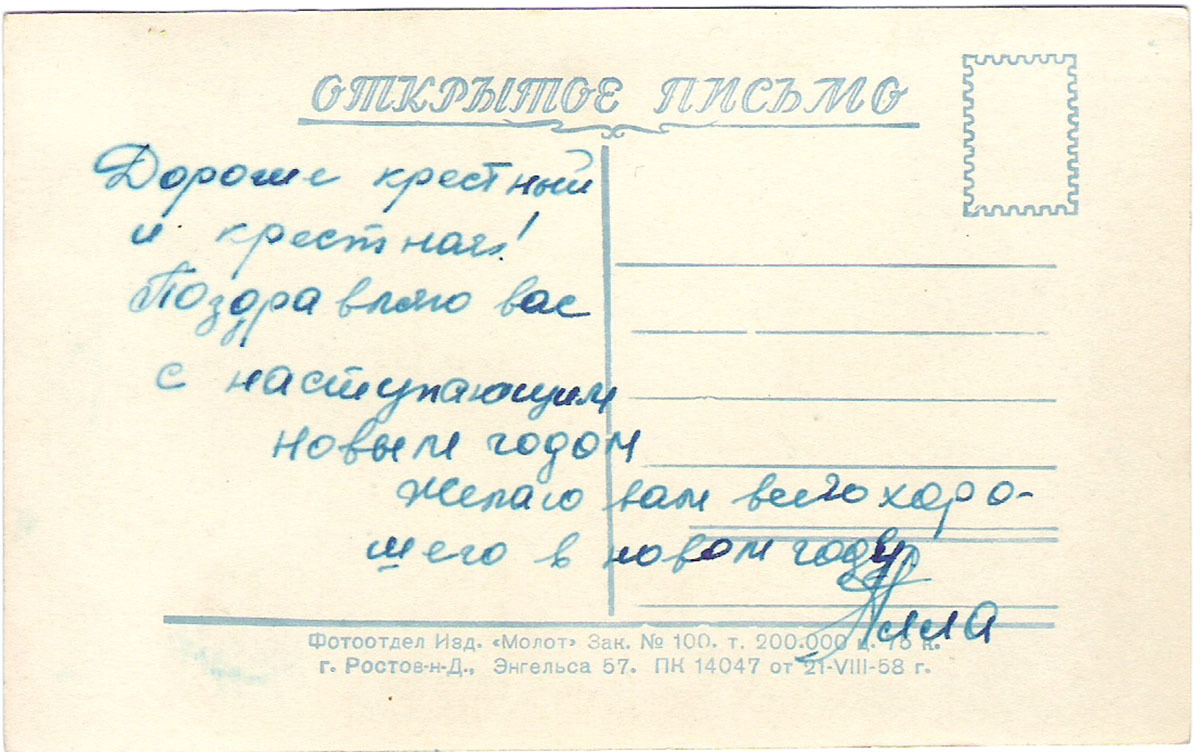 ОТКРЫТОЕ ПИСЬМО
Дорогие крестный
и крестная!
Поздравляю вас
с наступающим
новым годом
Желаю вам всего хоро-
шего в новом году
Алла
Фотоотдел Изд. «Молот» Зак. № 100. т. 200.000 ц. 75 к.
г. Ростов-н-Д., Энгельса 57. ПК 14047 от 21-VIII-58 г.